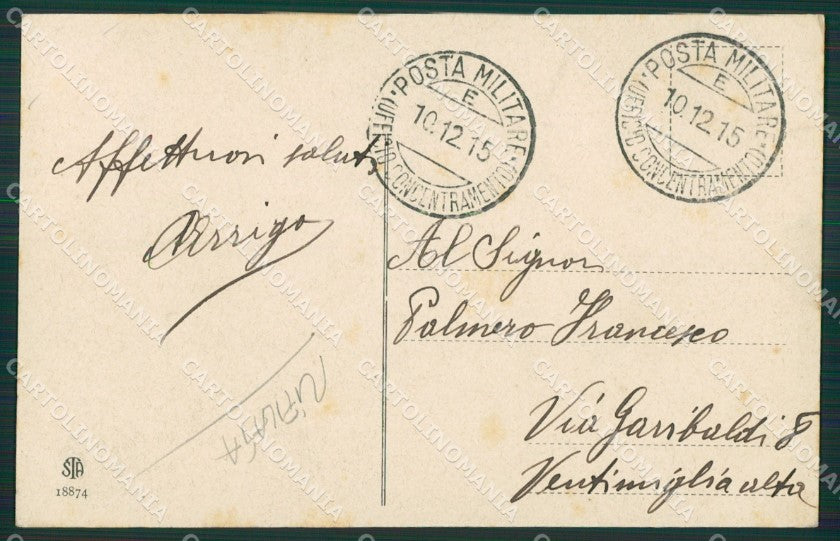 POSTA MILITARE
E
10.12.15
(UFFICIO CONCENTRAMENTO)
POSTA MILITARE
E
10.12.15
(UFFICIO CONCENTRAMENTO)
Affettuosi saluti
Arrigo
Al Signor
Palmero Francesco
Via Garibaldi 8
Ventimiglia alta
STA
18874
CARTOLINOMANIA